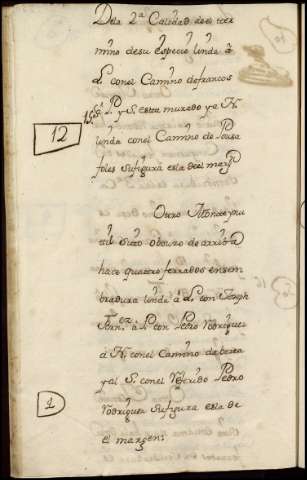 Dela 2ª Calidad de el ter
mino de su especie linda á
L. con el Camino de francos
15 P. y S. esta murado y a N.
12
linda con el Camino de
foles su figura es la del marg.n
Otro Monte ynu
til sito de arriba
hace quatro ferrados en sem
bradura linda á L. con Joseph
Fern.ez á P. con Pedro Rodriguez
á N. con el Camino de
y al S. con el Pedro
Rodriguez su figura es la de
1
el margen: